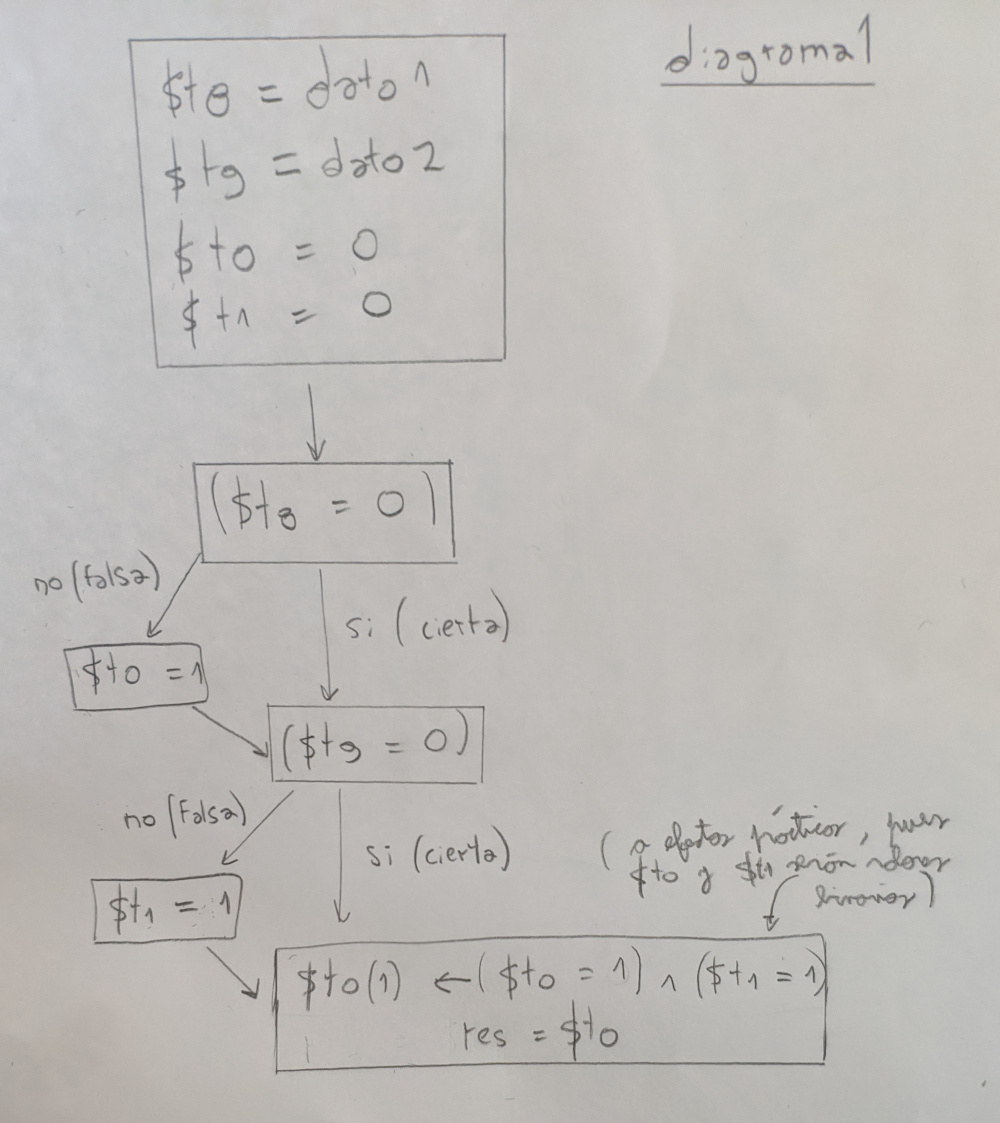 diagrama 1
$t8 = dato 1
$t9 = dato 2
$t0 = 0
$t1 = 0
($t8 = 0)
no (falsa)
si (cierta)
$t0 = 1
($t9 = 0)
no (Falsa)
si (cierta)
(a efectos prácticos, pues
$t0 y $t1 serán valores
binarios)
$t1 = 1
$t0(1) ← ($t0 = 1) ∧ ($t1 = 1)
res = $t0